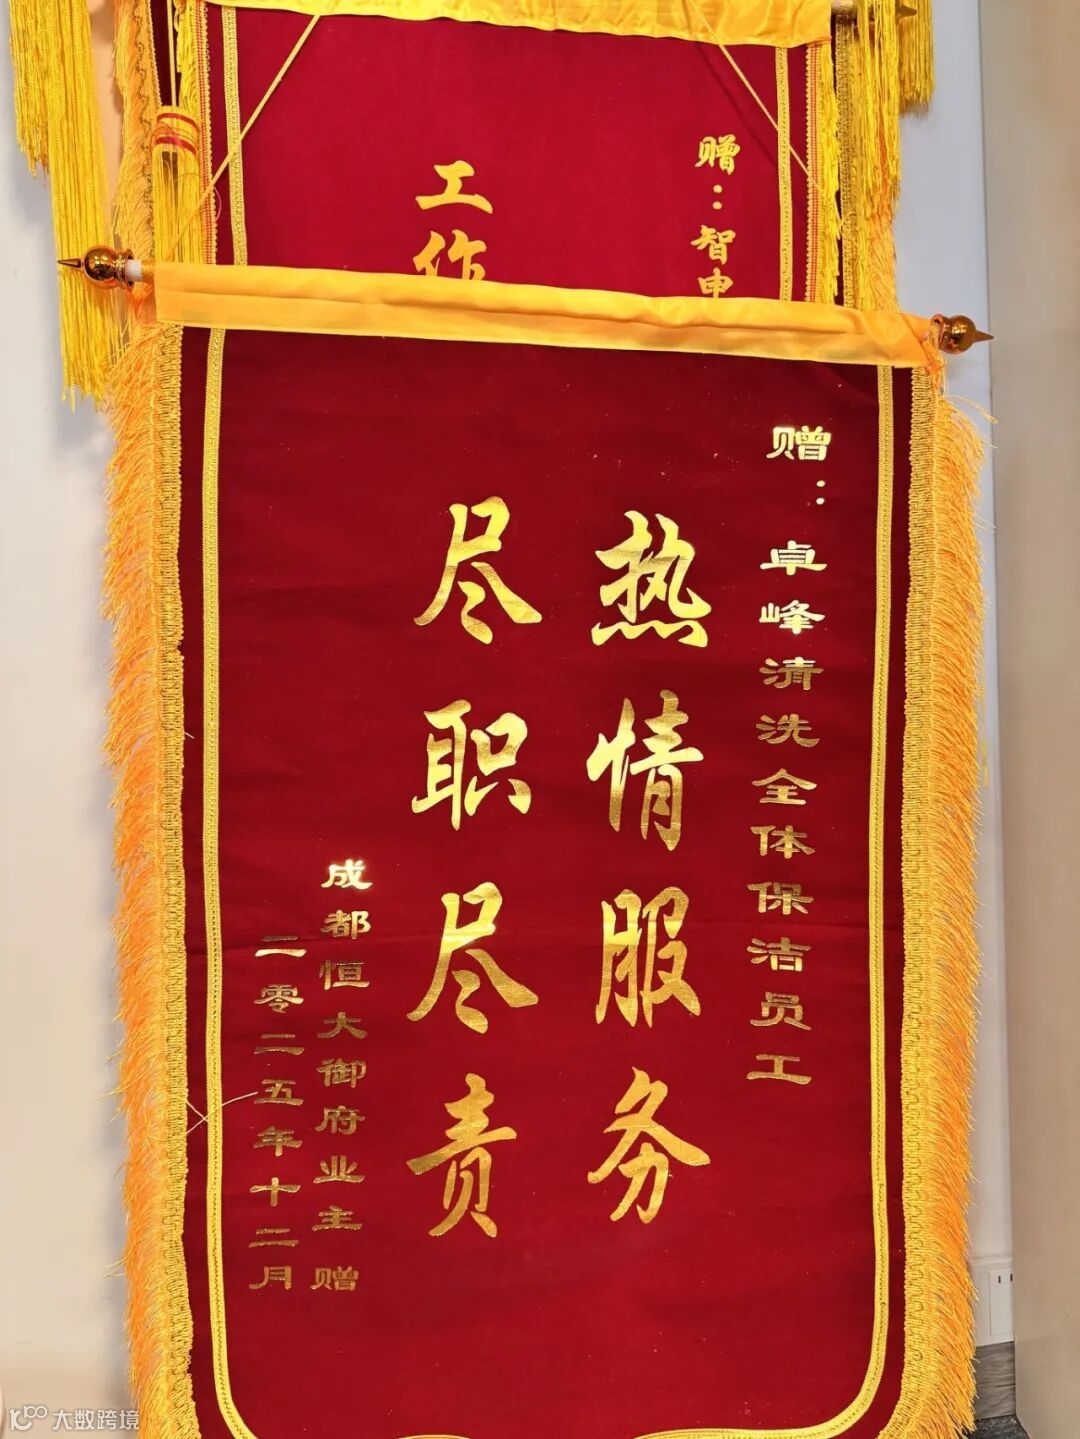 赠：智申
工作
赠：卓峰清洗全体保洁员工
热情服务
尽职尽责
成都恒大御府业主 赠
二零二五年十二月
大数跨境